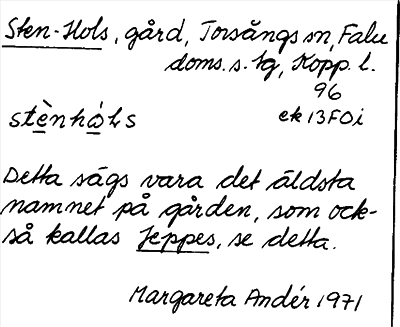 Sten-Hols, gård, Torsångs sn, Falu
doms. s. tg, Kopp. l.
96
stènhåls ek 13F0i
Detta sägs vara det äldsta
namnet på gården, som ock-
så kallas Jeppes, se detta.
Margareta Andér 1971